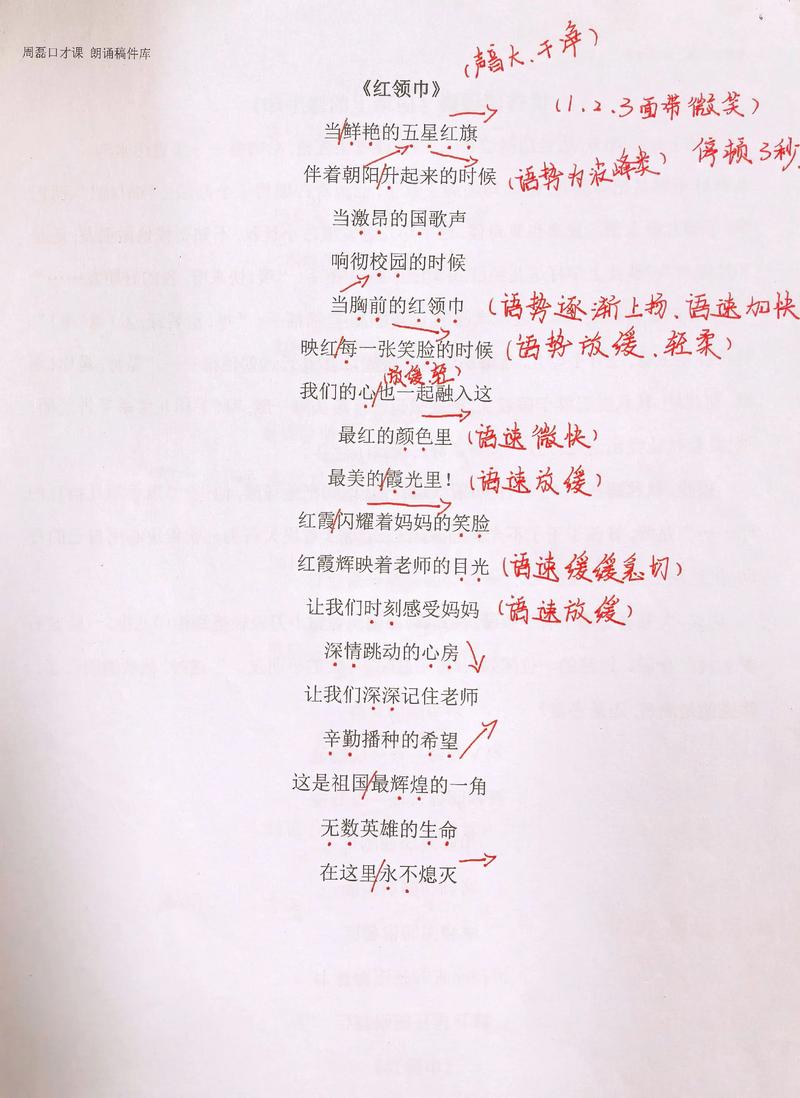 周磊口才课 朗诵稿件库
(声音大、干净)
《红领巾》
(1.2.3面带微笑)
当鲜艳的五星红旗
停顿3秒
伴着朝阳升起来的时候 (语势为波峰类)
当激昂的国歌声
响彻校园的时候
当胸前的红领巾 (语势逐渐上扬、语速加快
映红每一张笑脸的时候 (语势放缓、轻柔)
(放缓、轻)
我们的心也一起融入这
最红的颜色里 (语速微快)
最美的霞光里! (语速放缓)
红霞闪耀着妈妈的笑脸
红霞辉映着老师的目光 (语速缓缓急切)
让我们时刻感受妈妈 (语速放缓)
深情跳动的心房
让我们深深记住老师
辛勤播种的希望
这是祖国最辉煌的一角
无数英雄的生命
在这里永不熄灭